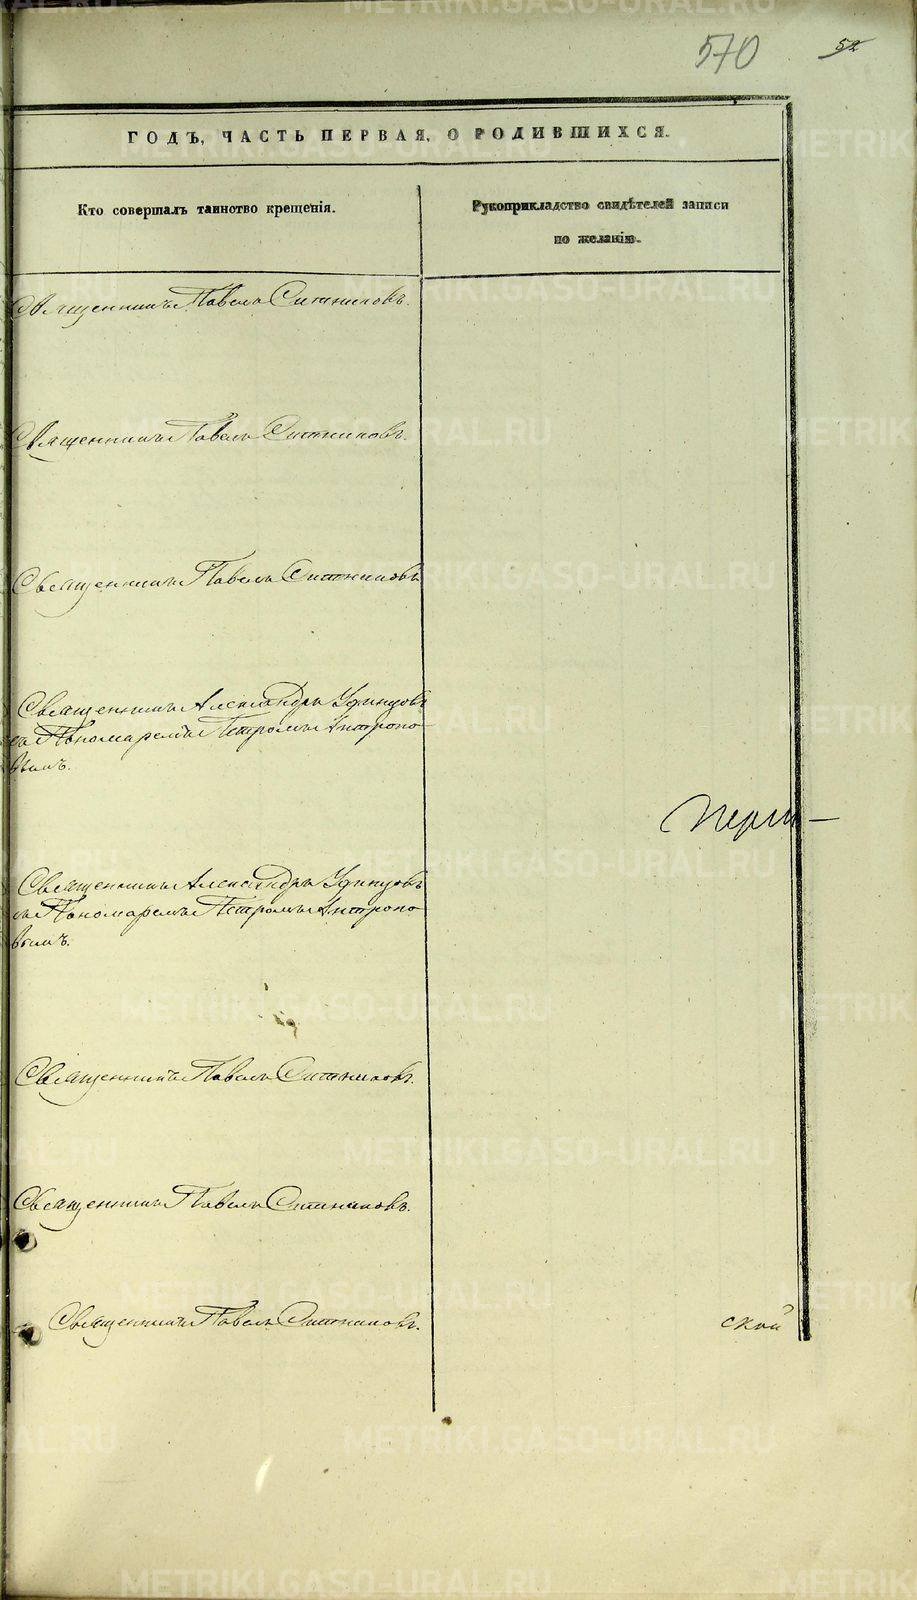 570
52
ГОДЪ, ЧАСТЬ ПЕРВАЯ, О РОДИВШИХСЯ.
Кто совершалъ таинство крещенія.
Рукоприкладство свидѣтелей записи
по желанію.
Священникъ Павелъ Ситниковъ.
Священникъ Павелъ Ситниковъ.
Священникъ Павелъ Ситниковъ
Священникъ Александръ Уфинцовъ
съ Пономаремъ Петромъ Антропо
вымъ.
Перм-
Священникъ Александръ Уфинцовъ
съ Пономаремъ Петромъ Антропо
вымъ.
Священникъ Павелъ Ситниковъ.
Священникъ Павелъ Ситниковъ.
Священникъ Павелъ Ситниковъ.
ской
METRIKI.GASO-URAL.RU